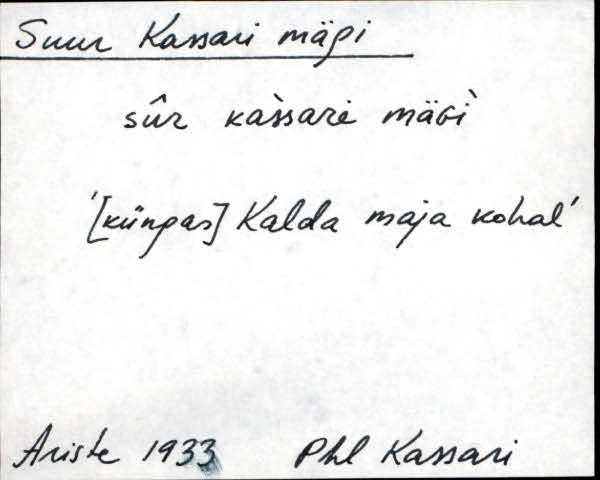 Suur Kassari mägi
sûr kàssari mäɢì
'[küngas] Kalda maja kohal'
Ariste 1933 Phl Kassari